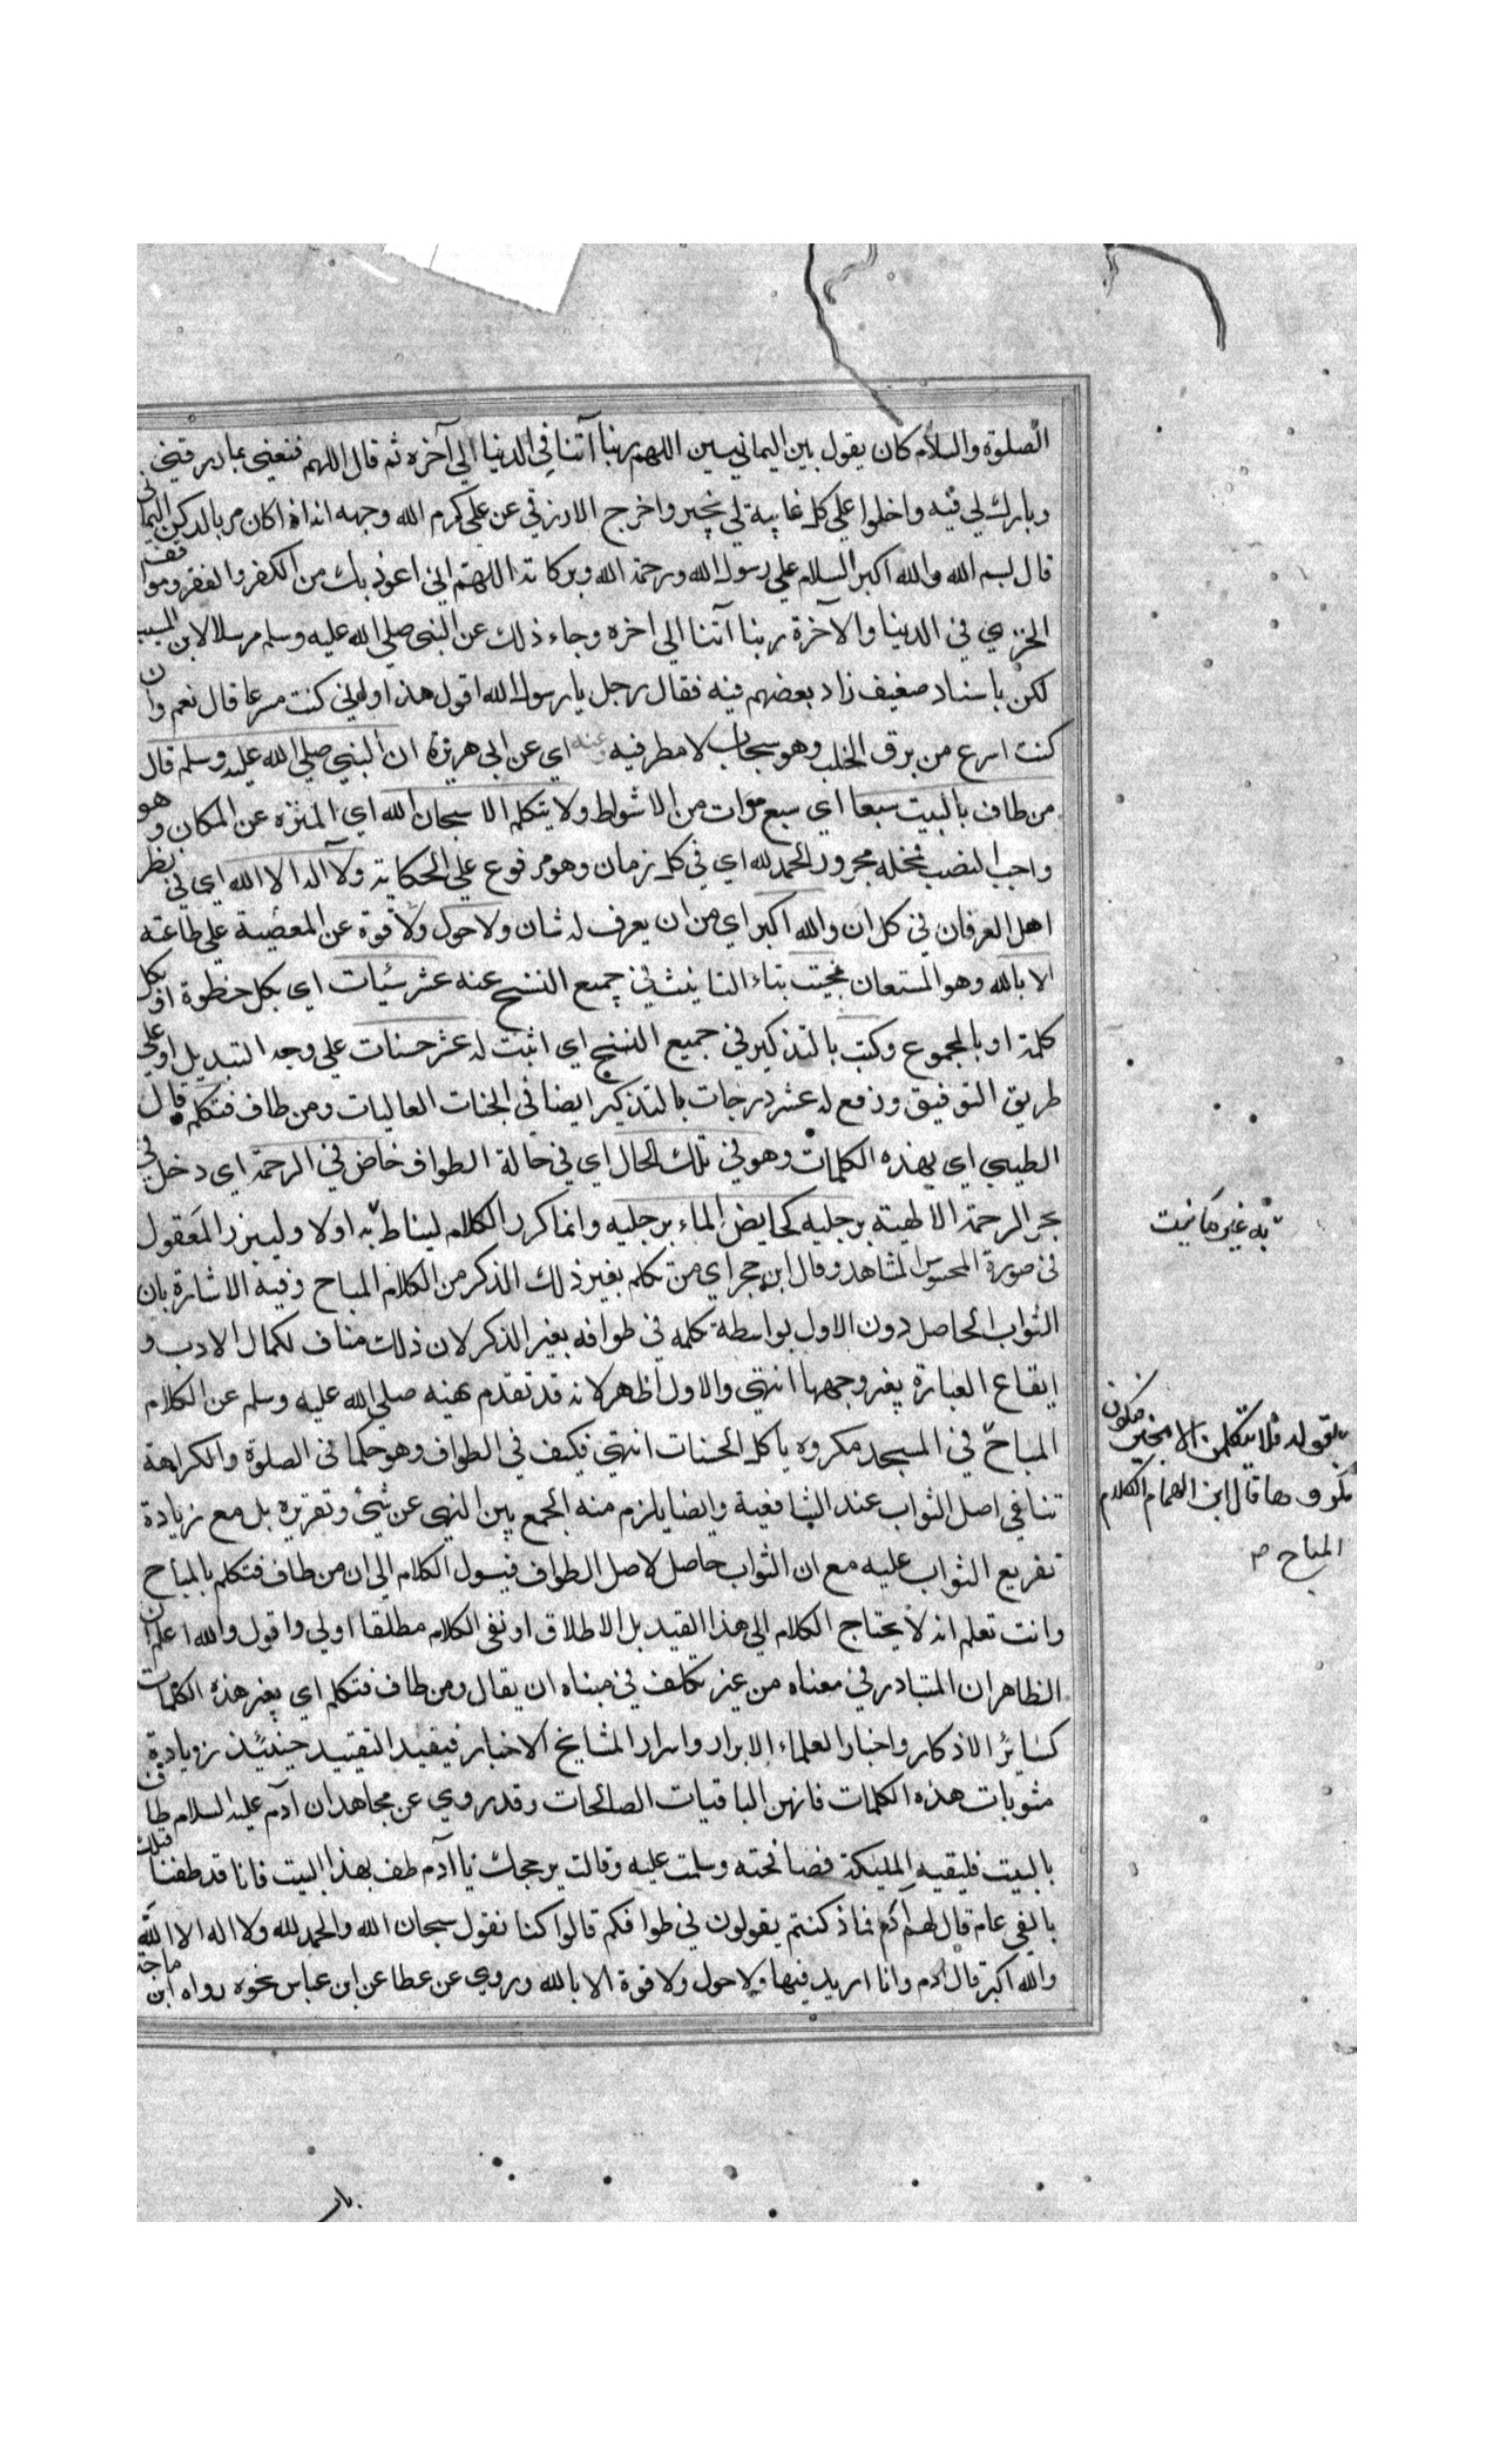 الصلوة والسلام كان يقول بين اليمانيين اللهم ربنا آتنا في الدنيا الي آخره ثم قال اللهم قنعني بما رزقتني
وبارك لي فيه واخلوا علي كل غايبة لي بخير واخرج الازرقي عن علي كرم الله وجهه انه اذا كان مر بالركن اليماني
قال بسم الله والله اكبر السلام علي رسول الله ورحمة الله وبركاته اللهم اني اعوذ بك من الكفر والفقر ومواقف
الخزي في الدنيا والآخرة ربنا آتنا الي اخره وجاء ذلك عن النبي صلي الله عليه وسلم مرسلا لابن المسيب
لكن باسناد ضعيف زاد بعضهم فيه فقال رجل يا رسول الله اقول هذا ولوني كنت مسرعا قال نعم وان
كنت اسرع من برق الخلب وهو سحاب لا مطر فيه وعنه اي عن ابي هريرة ان النبي صلي الله عليه وسلم قال
من طاف بالبيت سبعا اي سبع مرات من الاشواط ولا يتكلم الا سبحان الله اي المنزه عن المكان وهو
واجب النصب فمحله مجرور الحمد لله اي في كل زمان وهو مرفوع علي الحكاية ولا آله الا الله اي في نظر
اهل العرفان في كل ان والله اكبر اي من ان يعرف له شان ولا حول ولا قوة عن المعصية علي طاعته
الا بالله وهو المستعان محيت بتاء التانيث في جميع النسخ عنه عشر سيئات اي بكل خطوة او بكل
كلمة او بالمجموع وكتب بالتذكير في جميع النسخ اي اثبت له عشر حسنات علي وجه التبديل او علي
طريق التوفيق ورفع له عشر درجات بالتذكير ايضا في الجنات العاليات ومن طاف فتكلم قال
الطيبي اي بهذه الكلمات وهو في تلك الحال اي في حالة الطواف خاض في الرحمة اي دخل في
بحر الرحمة الالهية برجليه كخايض الماء برجليه وانما كرر الكلام ليناط به اولا وليبرز المعقول
في صورة المحسوس المشاهد وقال ابن حجر اي من تكلم بغير ذلك الذكر من الكلام المباح وفيه الاشارة بان
الثواب الحاصل دون الاول بواسطة تكلمه في طوافه بغير الذكر لان ذلك مناف لكمال الادب و
ايقاع العبارة بغير وجهها انتهي والاول اظهر لانه قد تقدم نهيه صلي الله عليه وسلم عن الكلام
المباح في المسجد مكروه ياكل الحسنات انتهي فكيف في الطواف وهو حكما في الصلوة والكراهة
تنافي اصل الثواب عند الشافعية وايضا يلزم منه الجمع بين النهي عن شيئ وتقريره بل مع زيادة
تفريع الثواب عليه مع ان الثواب حاصل لاصل الطواف فيسول الكلام الي ان من طاف فتكلم بالمباح
وانت تعلم انه لا يحتاج الكلام الي هذا القيد بل الاطلاق او نفي الكلام مطلقا اولي واقول والله اعلم ان
الظاهر ان المتبادر في معناه من غير تكلف في مبناه ان يقال ومن طاف فتكلم اي بغير هذه الكلمات
كسائر الاذكار واخبار العلماء الابرار واسرار المشايخ الاخيار فيفيد التقييد حينئذ زيادة
مثوبات هذه الكلمات فانهن الباقيات الصالحات وقد روي عن مجاهد ان آدم عليه السلام طاف
بالبيت فليقيه المليكة فصافحته وسلمت عليه وقالت بر حجك يا آدم طف بهذا البيت فانا قد طفنا قبلك
بالفي عام قال لهم آدم فماذ كنتم يقولون في طوافكم قالوا كنا نقول سبحان الله والحمد لله ولا اله الا الله
والله اكبر قال آدم وانا ازيد فيها ولا حول ولا قوة الا بالله وروي عن عطا عن ابن عباس نحوه رواه ابن ماجة
به غير ما نيت
بقوله فلا يتكلمن الا بخير فيكون
مكروها قال ابن الهمام الكلام
المباح صـ